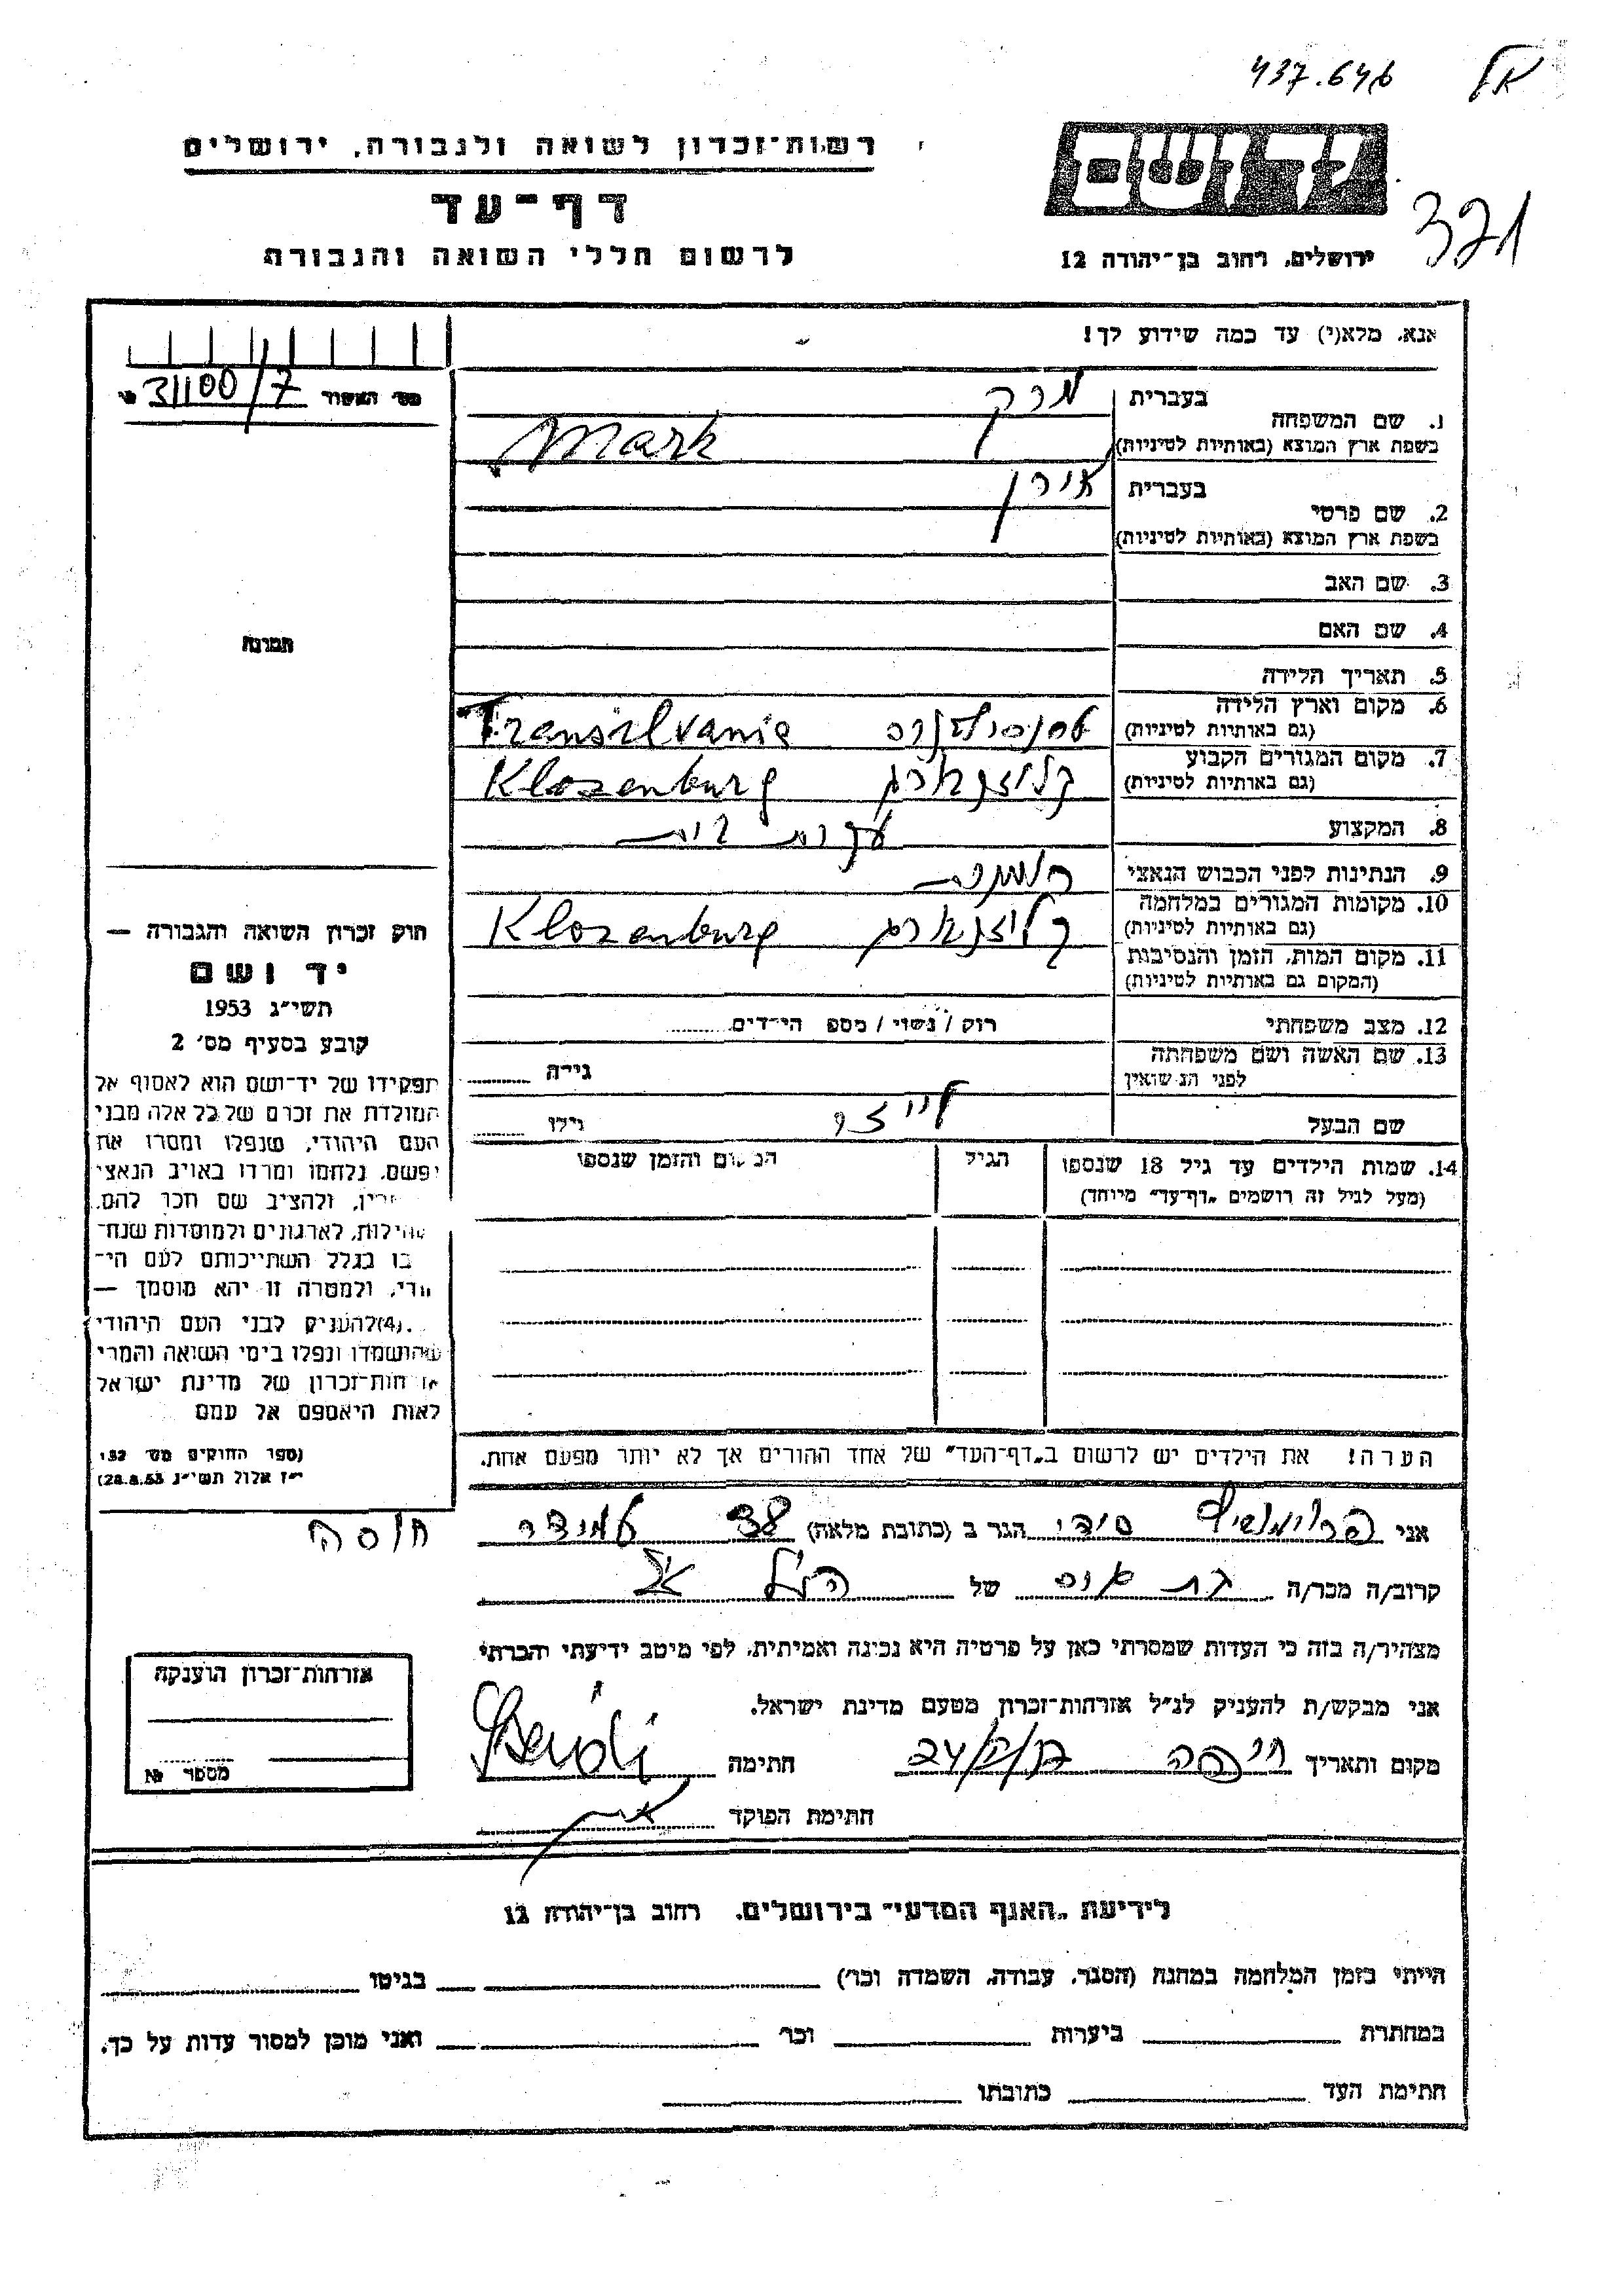 437.646
321
רשות־זכרון לשואה ולגבורה, ירושלים
דף־עד
לרשום חללי השואה והגבורה
יד ושם
ירושלים, רחוב בן־יהודה 12
אנא, מלא(י) עד כמה שידוע לך!
מס׳ האשור 31100/7
1. שם המשפחה בעברית מרק
בשפת ארץ המוצא (באותיות לטיניות) Mark
2. שם פרטי בעברית אירן
בשפת ארץ המוצא (באותיות לטיניות)
3. שם האב
4. שם האם
5. תאריך הלידה
6. מקום וארץ הלידה
(גם באותיות לטיניות) Transilvania
7. מקום המגורים הקבוע
(גם באותיות לטיניות) קלוזנבורג Klozenburg
8. המקצוע עקרת בית
9. הנתינות לפני הכבוש הנאצי
10. מקומות המגורים במלחמה
(גם באותיות לטיניות) קלוזנבורג Klozenburg
11. מקום המות, הזמן והנסיבות
(המקום גם באותיות לטיניות)
12. מצב משפחתי רוק / נשוי / מספ הי־דים
13. שם האשה ושם משפחתה
לפני הנשואין גירה
שם הבעל גילו
14. שמות הילדים עד גיל 18 שנספו הגיל המקום והזמן שנספו
(מעל לגיל זה רושמים „דף־עד״ מיוחד)
הערה! את הילדים יש לרשום ב„דף־העד״ של אחד ההורים אך לא יותר מפעם אחת.
תמונה
חוק זכרון השואה והגבורה —
יד ושם
תשי״ג 1953
קובע בסעיף מס׳ 2
תפקידו של יד־ושם הוא לאסוף אל
המולדת את זכרם של כל אלה מבני
העם היהודי, שנפלו ומסרו את
נפשם, נלחמו ומרדו באויב הנאצי
ולהציב שם וזכר להם,
לקהילות, לארגונים ולמוסדות שנח־
רבו בגלל השתייכותם לעם הי־
הודי, ולמטרה זו יהא מוסמך —
(4) להעניק לבני העם היהודי
שהושמדו ונפלו בימי השואה והמרי
אזרחות־זכרון של מדינת ישראל
לאות היאספם אל עמם
(ספר החוקים מס׳ 132
י״ז אלול תשי״ג 28.8.53)
אני הגר ב (כתובת מלאה) 38
קרוב/ה מכר/ה של
מצהיר/ה בזה כי העדות שמסרתי כאן על פרטיה היא נכונה ואמיתית, לפי מיטב ידיעתי והכרתי
אני מבקש/ת להעניק לנ״ל אזרחות־זכרון מטעם מדינת ישראל.
מקום ותאריך חיפה חתימה
חתימת הפוקד
אזרחות־זכרון הוענקה
מספר №
לידיעת „האגף המדעי״ בירושלים, רחוב בן־יהודה 12
הייתי בזמן המלחמה במחנה (הסגר, עבודה, השמדה וכר׳) בגיטו
במחתרת ביערות וכר׳ ואני מוכן למסור עדות על כך.
חתימת העד כתובתו